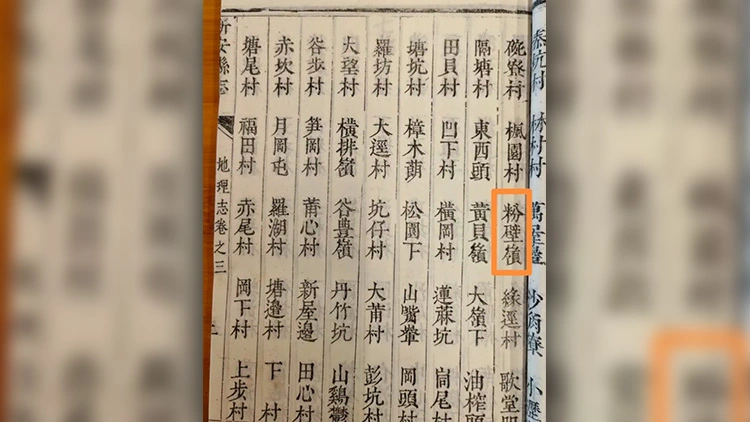 萬屋邊
碗寮村 楓園村 粉壁嶺 綠逕村 歌堂
隔塘村 東西頭 黃貝嶺 大嶺下 油榨頭
田貝村 凹下村 橫岡村 蓮蔴坑 尾村
塘坑村 樟木蓢 松園下 山嘴輋 岡頭村
羅坊村 大逕村 坑仔村 大莆村 彭坑村
大望村 橫排嶺 谷豊嶺 丹竹坑 山鷄鬱
谷步村 笋岡村 莆心村 新屋邊 田心村
赤坎村 月岡屯 羅湖村 塘邊村 下村
塘尾村 福田村 赤尾村 岡下村 上步村
新安縣志 地理志卷之三